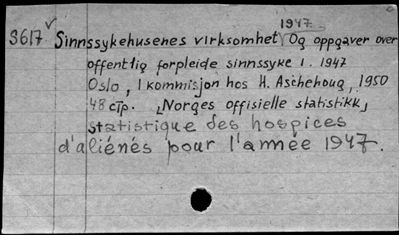 1947
S617 Sinnssykehusenes virksomhet Og oppgaver over
offentlig forpleide sinnssyke i. 1947
Oslo, I kommisjon hos H. Aschehoug, 1950
48 cTp. [Norges offisielle statistikk]
statistique des hospices
d'aliénés pour l'année 1947.